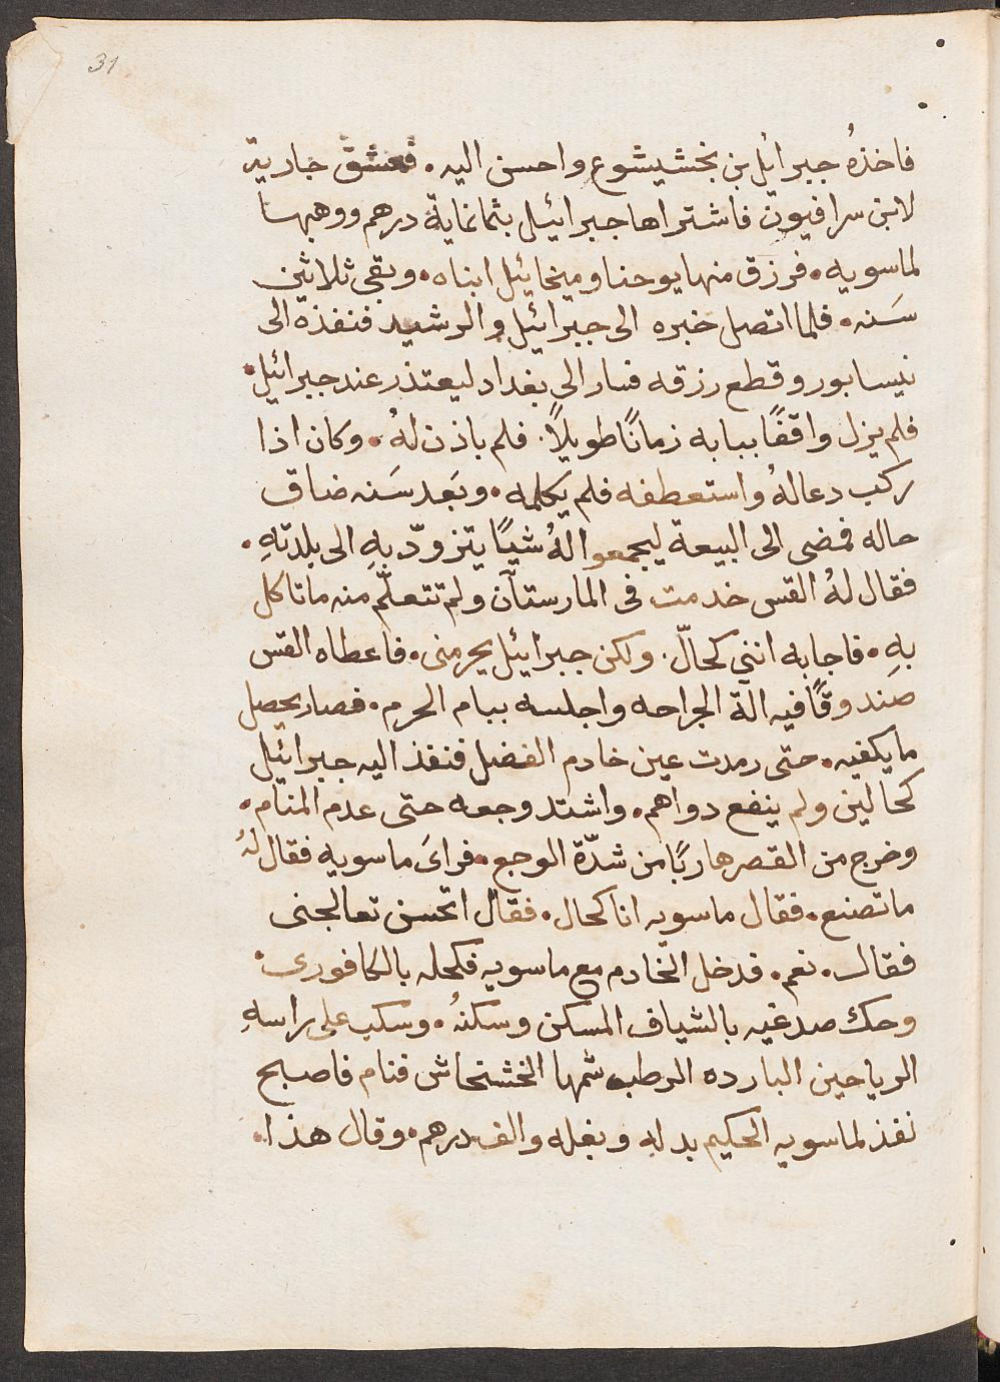 31
فاخذهُ جبرائيل بن بختيشوع واحسن اليه. فعشق جارية
لابن سرافيون فاشتراها جبرائيل بثمانماية درهم ووهبها
لماسويه. فرزق منها يوحنا وميخائيل ابناه. وبقى ثلاثين
سَنه. فلما اتصل خبره الى جبرائيل والرشيد فنفذه الى
نيسابور وقطع رزقه فسار الى بغداد ليعتذر عند جبرائيل.
فلم يزل واقفًا ببابه زمانًا طويلًا. فلم ياذن لهُ. وكان اذا
ركب دعا لهُ واستعطفه فلم يكلمه. وبَعد سَنه ضاق
حاله فمضى الى البيعة ليجمعوا لهُ شيًا يتزوّد بهِ الى بلدتهِ.
فقال لهُ القس خدمت فى المارستآن ولم تتعلّم منه ما تاكل
بهِ. فاجابه اننى كحالّ. ولكن جبرائيل يحرمنى. فاعطاه القس
صندوقًا فيه الة الجراحه واجلسه ببام الحرم. فصار يحصل
ما يكفيه. حتى رمدت عين خادم الفضل فنفذ اليه جبرائيل
كحالين ولم ينفع دواهم. واشتد وجعه حتى عدم المنام.
وخرج من القصر هاربًا من شدّة الوجع. فراىَ ماسويه فقال لهُ
ما تصنع. فقال ماسويه انا كحال. فقال اتحسن تعالجنى
فقال. نعم. فدخل الخادم مع ماسويه فكحله بالكافورى.
وحك صدغيه بالشياف المسكن وسكنهُ. وسكب على راسهِ
الرياحين البارده الرطبه شمها الخشخاش فنام فاصبح
نفذ لماسويه الحكيم بدله وبغله والف درهم. وقال هذا.